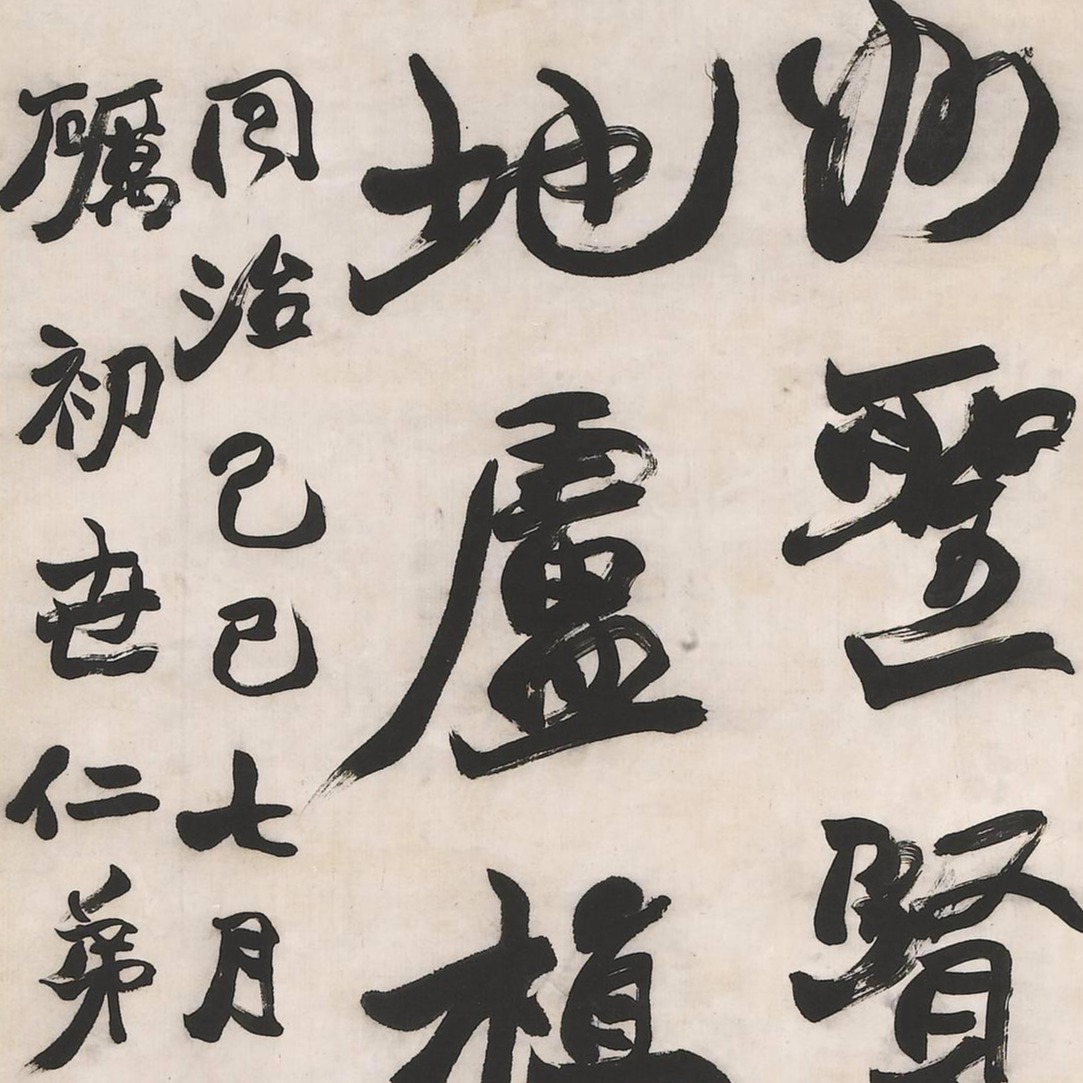 州聖賢
地盧植
同治己巳七月
礪初世仁弟